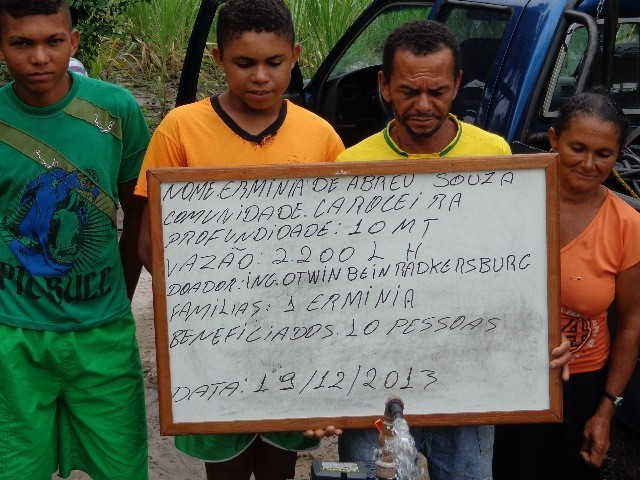 NOME.ERMINIA DE ABREU SOUZA
COMUNIDADE.CAROCEIRA
PROFUNDIDADE: 10 MT
VAZÃO: 2.200 L H
DOADOR: ING.OTWIN BEIN RADKERSBURG
FAMILIAS: 1 ERMINIA
BENEFICIADOS. 10 PESSOAS
DATA: 19/12/2013
PITBULL